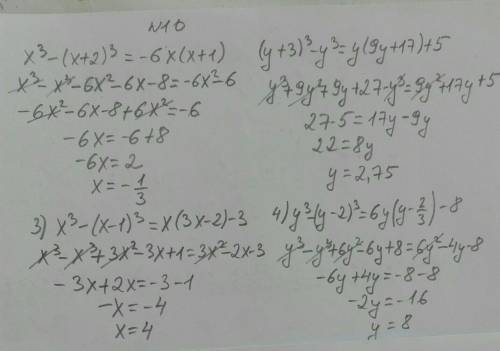 №10
x³-(x+2)³=-6x(x+1)
x³-x³-6x²-6x-8=-6x²-6
-6x²-6x-8+6x²=-6
-6x=-6+8
-6x=2
x=-1/3
(y+3)³-y³=y(9y+17)+5
y³+9y²+9y+27-y³=9y²+17y+5
27-5=17y-9y
22=8y
y=2,75
3) x³-(x-1)³=x(3x-2)-3
x³-x³+3x²-3x+1=3x²-2x-3
-3x+2x=-3-1
-x=-4
x=4
4) y³-(y-2)³=6y(y-2/3)-8
y³-y³+6y²-6y+8=6y²-4y-8
-6y+4y=-8-8
-2y=-16
y=8